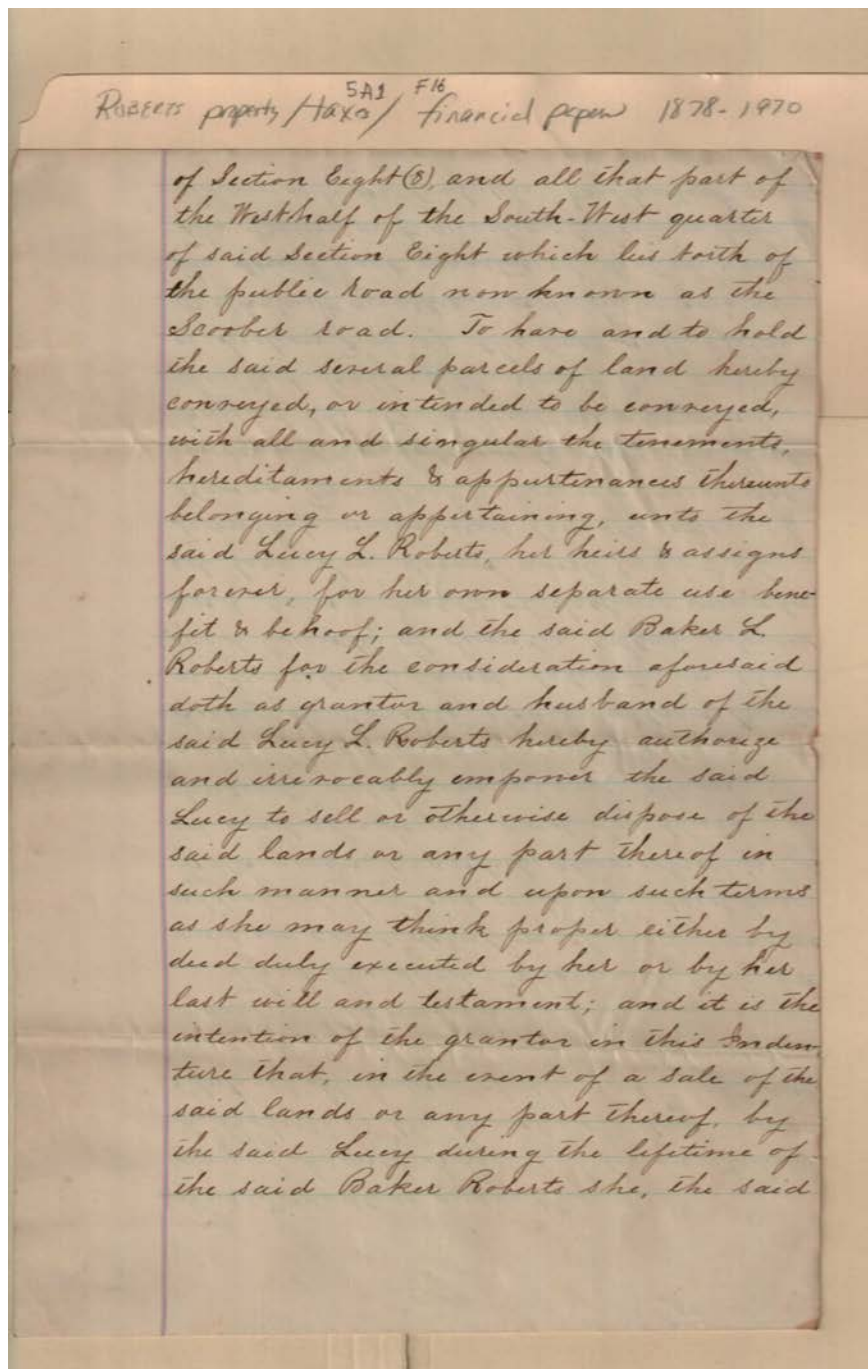 5A1 F16
ROBERTS property / taxes / financial papers 1878-1970
of Section Eight (8), and all that part of
the West half of the South-West quarter
of said Section Eight which lies North of
the public road now known as the
Scoober road. To have and to hold
the said several parcels of land hereby
conveyed, or intended to be conveyed,
with all and singular the tenements,
hereditaments & appurtenances thereunto
belonging or appertaining, unto the
said Lucy L. Roberts, her heirs & assigns
forever, for her own separate use bene-
fit & behoof; and the said Baker L.
Roberts for the consideration aforesaid
doth as grantor and husband of the
said Lucy L. Roberts hereby authorize
and irrevocably empower the said
Lucy to sell or otherwise dispose of the
said lands or any part thereof in
such manner and upon such terms
as she may think proper either by
deed duly executed by her or by her
last will and testament; and it is the
intention of the grantor in this Inden-
ture that, in the event of a sale of the
said lands or any part thereof, by
the said Lucy during the lifetime of
the said Baker Roberts she, the said